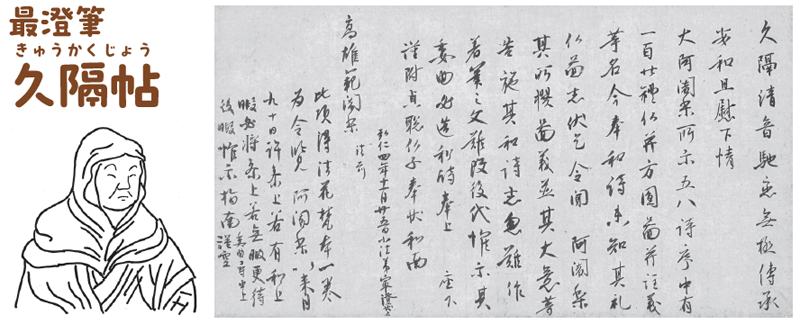 最澄筆
きゅうかくじょう
久隔帖
久隔清音馳恋無極傳承
安和且慰下情
大阿闍梨所示五八詩序中有
一百廿禮仏并方圓圖并註義
等名今奉和詩未知其礼
仏圖者伏乞令聞 阿闍梨
其所撰圖義并其大意等
告施其和詩者忽難作
著筆之文難改後代惟示其
委曲必造和詩奉上 座下
謹附貞聡仏子奉状和南
弘仁四年十一月廿五日小法弟最澄
高雄範闍梨 法前
此頃得法花梵本一巻
為令覧 阿闍梨以来月
九十日許参上若有和上
暇必将参上若無暇更待
後暇惟示指南 謹空